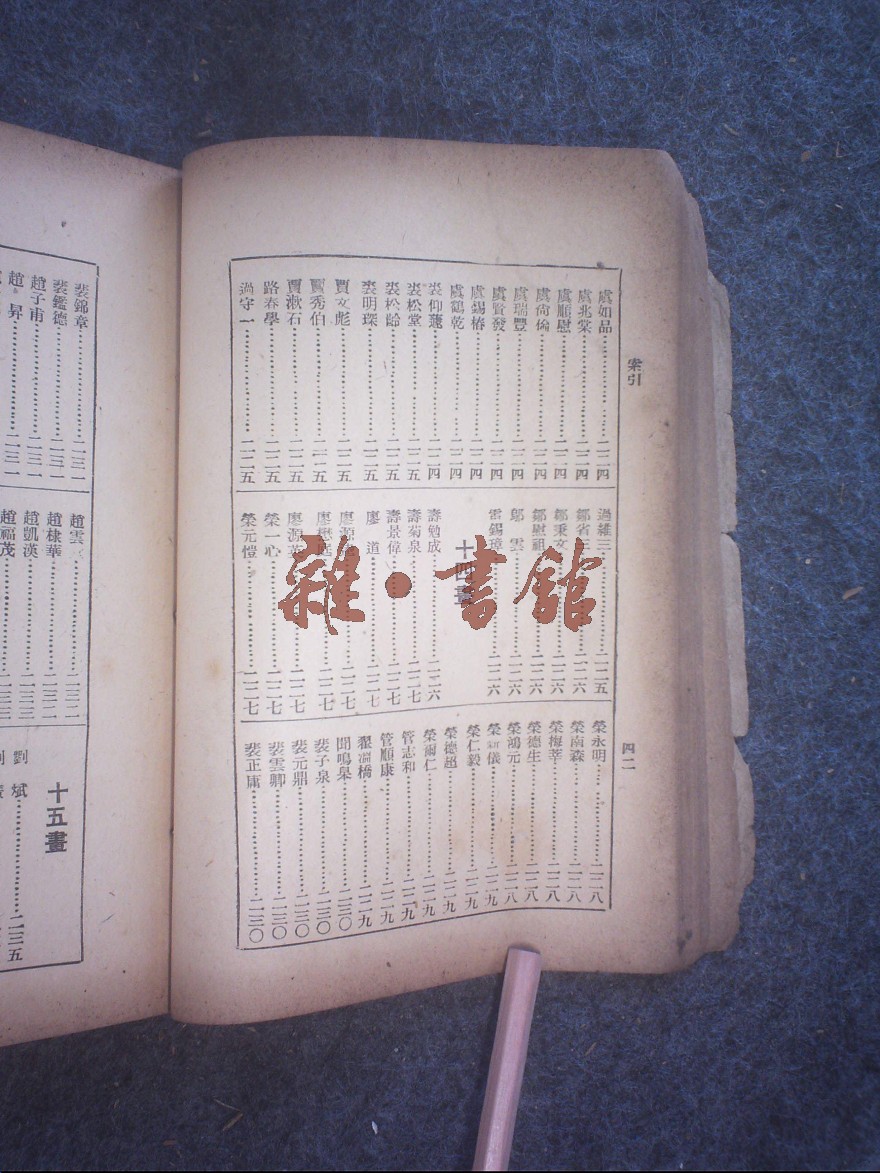 案引
四二
虞如品 二二四
虞兆棠 二二四
虞順慰 二二四
虞尙倫 二二四
虞瑞豐 二二四
虞賢發 二二四
虞錫椿 二二四
虞鶴乾 二二四
裘仰蓮 二二四
裘松堂 二二五
裘松齡 二二五
裘明琛 二二五
賈文彪 二二五
賈秀伯 二二五
賈漱石 二二五
路春學 二二五
過守一 二二五
過維三 二二五
鄒省 二二六
鄒秉文 二二六
鄒慰祖 二二六
鄔雲 二二六
雷錫璋 二二六
十四畫
壽勉成 二二六
壽菊泉 二二七
壽景偉 二二七
廖道 二二七
廖源 二二七
廖懋 二二七
廖源 二二七
榮一心 二二七
榮元愷 二二七
榮永明 二二八
榮南森 二二八
榮梅莘 二二八
榮德生 二二八
榮鴻元 二二八
榮 儀 二二九
榮仁毅 二二九
榮德超 二二九
榮爾仁 二二九
管志和 二二九
管順康 二二九
聞鳴皋 二三〇
裴子泉 二三〇
裴元鼎 二三〇
裴雲卿 二三〇
裴正庸 二三〇
裴錦章 二三一
裴鑑德 二三一
趙子甫 二三一
趙昇 二三一
趙雲三
趙棣華 二三二
趙凱漢
趙福茂
十五畫
劉斌 二三五
雜·書館